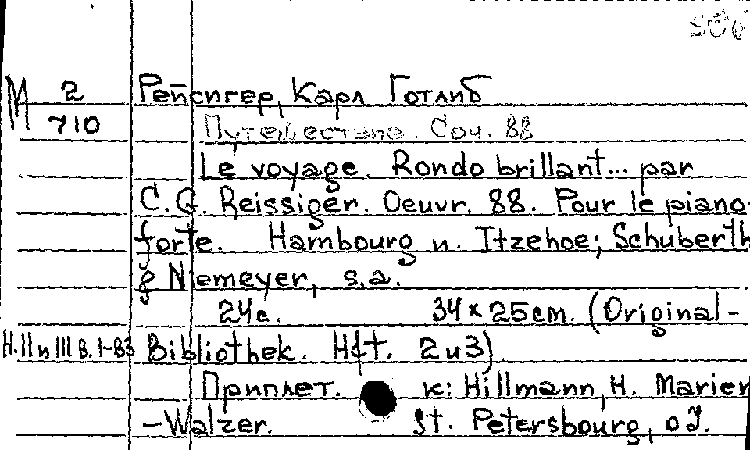 М 2 Рейсигер, Карл Готлиб
710 Путешествие. Соч. 88
Le voyage. Rondo brillant... par
C.G. Reissiger. Oeuvr. 88. Pour le piano-
forte. Hambourg u. Itzehoe; Schuberth
& Niemeyer, s.a.
24с. 34 x 25 cm. (Original-
H. II и III В. 1-83 Bibliothek. Hft. 2 и 3)
Приплет. к: Hillmann, H. Marien
-Walzer. St. Petersbourg, o J.